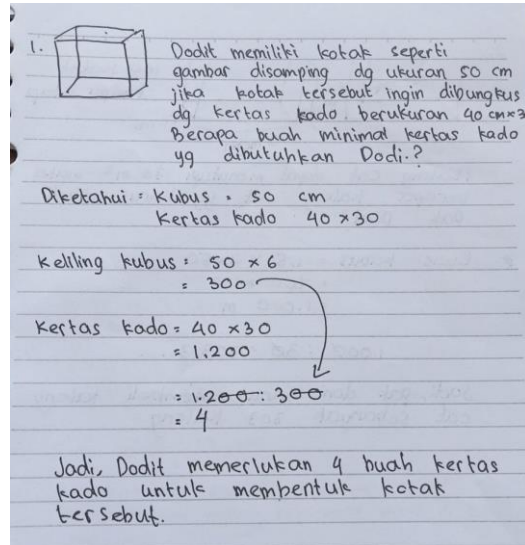 1.
Dodit memiliki kotak seperti
gambar disamping dg ukuran 50 cm
jika kotak tersebut ingin dibungkus
dg kertas kado berukuran 40 cm×3
Berapa buah minimal kertas kado
yg dibutuhkan Dodi.?
Diketahui : Kubus = 50 cm
Kertas kado 40 ×30
Keliling kubus = 50 × 6
= 300
Kertas kado = 40 ×30
= 1.200
= 1.200 : 300
= 4
Jadi, Dodit memerlukan 4 buah kertas
kado untuk membentuk kotak
tersebut.